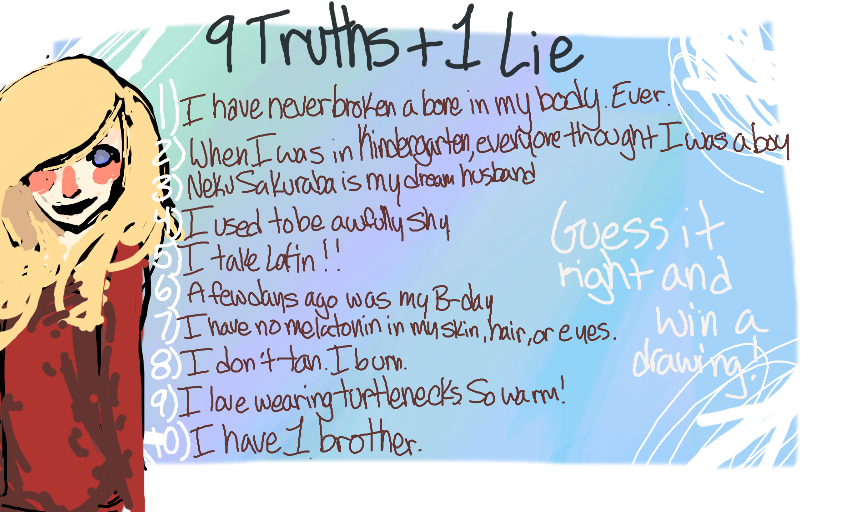 9 Truths + 1 Lie
1) I have never broken a bone in my body. Ever.
2) When I was in Kindergarten, everyone thought I was a boy
3) Neku Sakuraba is my dream husband
4) I used to be awfully shy
5) I take Latin!!
6) A few days ago was my B-day
7) I have no melatonin in my skin, hair, or eyes.
8) I don't tan. I burn.
9) I love wearing turtlenecks. So warm!
10) I have 1 brother.
Guess it
right and
win a
drawing!